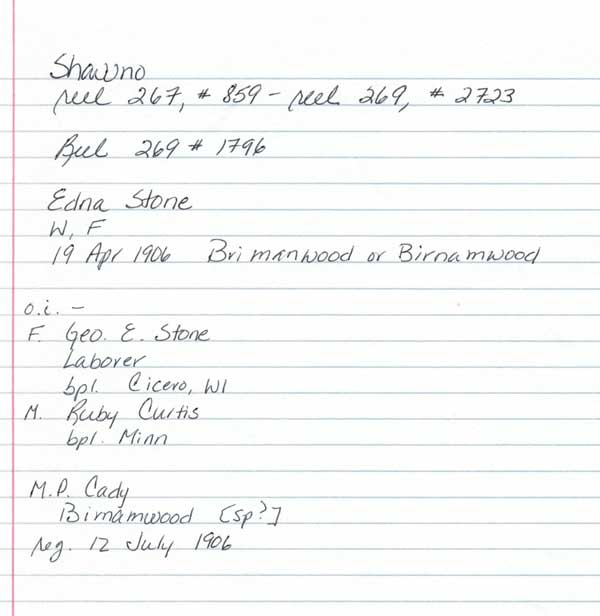 Shawno
reel 267, # 859 - reel 269, # 2723
Reel 269 # 1796
Edna Stone
W, F
19 Apr 1906 Brimanwood or Birnamwood
o.i. -
F. Geo. E. Stone
Laborer
bpl. Cicero, WI
M. Ruby Curtis
bpl. Minn
M.P. Cady
Birnamwood [sp?]
reg. 12 July 1906